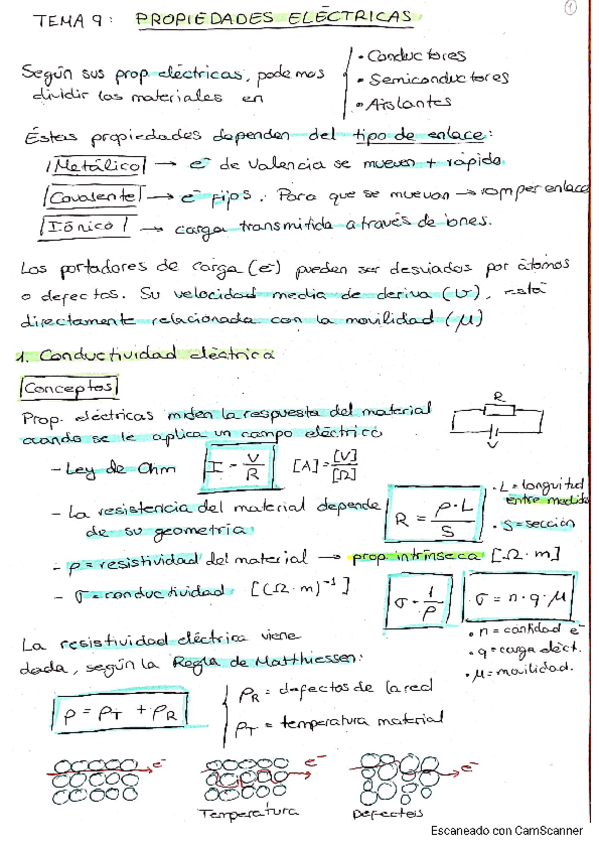 ①
TEMA 9: PROPIEDADES ELÉCTRICAS
Según sus prop. eléctricas, podemos
dividir los materiales en
• Conductores
• Semiconductores
• Aislantes
Éstas propiedades dependen del tipo de enlace:
Metálico → e⁻ de valencia se mueven + rápido
Covalente → e⁻ fijos. Para que se muevan → romper enlace
Iónico → carga transmitida a través de iones.
Los portadores de carga (e⁻) pueden ser desviados por átomos
o defectos. Su velocidad media de deriva (v), está
directamente relacionada con la movilidad (μ)
1. Conductividad eléctrica
Conceptos
Prop. eléctricas miden la respuesta del material
cuando se le aplica un campo eléctrico
R
V
- Ley de Ohm I = V/R [A] = [V]/[Ω]
- La resistencia del material depende
de su geometría.
R = ρ·L/S
• L = longuitud
entre medida
• S = sección
- ρ = resistividad del material → prop. intrínseca [Ω·m]
- σ = conductividad [(Ω·m)⁻¹]
σ = 1/ρ
σ = n·q·μ
• n = cantidad e⁻
• q = carga eléct.
• μ = movilidad.
La resistividad eléctrica viene
dada, según la Regla de Matthiessen:
ρ = ρT + ρR
ρR = defectos de la red
ρT = temperatura material
e⁻ e⁻ e⁻
Temperatura Defectos
Escaneado con CamScanner